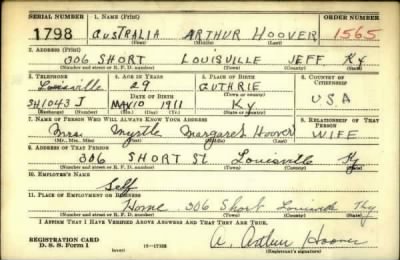 SERIAL NUMBER 1. NAME (Print) ORDER NUMBER
1798 AUSTRALIA ARTHUR HOOVER 1565
(First) (Middle) (Last)
2. ADDRESS (Print)
306 SHORT LOUISVILLE JEFF. Ky
(Number and street or R. F. D. number) (Town) (County) (State)
3. TELEPHONE 4. AGE IN YEARS 5. PLACE OF BIRTH 6. COUNTRY OF CITIZENSHIP
Louisville 29 GUTHRIE
DATE OF BIRTH (Town or county)
JA1043J MAY 10 1911 Ky USA
(Exchange) (Number) (Mo.) (Day) (Yr.) (State or country)
7. NAME OF PERSON WHO WILL ALWAYS KNOW YOUR ADDRESS 8. RELATIONSHIP OF THAT PERSON
Mrs. Myrtle Margaret Hoover WIFE
(Mr., Mrs., Miss) (First) (Middle) (Last)
9. ADDRESS OF THAT PERSON
306 SHORT St. Louisville Ky
(Number and street or R. F. D. number) (Town) (County) (State)
10. EMPLOYER'S NAME
Self
11. PLACE OF EMPLOYMENT OR BUSINESS
Home 306 Short Louisville Ky
(Number and street or R. F. D. number) (Town) (County) (State)
I AFFIRM THAT I HAVE VERIFIED ABOVE ANSWERS AND THAT THEY ARE TRUE.
REGISTRATION CARD
D. S. S. Form 1 (over) 16—17105 A. Arthur Hoover
(Registrant's signature)